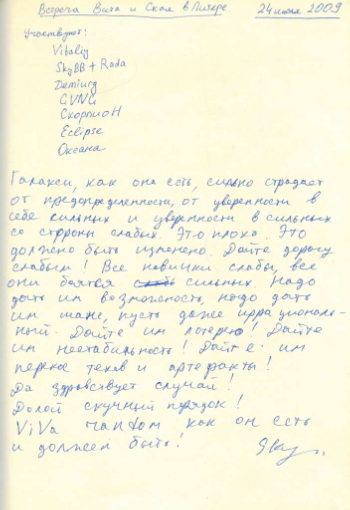 Встреча Вита и Ская в Питере 24 июля 2009
Участвуют:
Vitaliy
SkyBB + Rada
Demiurg
GVNG
СкорпиоН
Eclipse
Оксана
Галакси, как она есть, сильно страдает
от предопределенности, от уверенности в
себе сильных и уверенности в сильных
со стороны слабых. Это плохо. Это
должно быть изменено. Дайте дорогу
слабым! Все новички слабы, все
они боятся сильных. Надо
дать им возможность, надо дать
им шанс, пусть даже иррациональ-
ный. Дайте им лотерею! Дайте
им нестабильность! Дайте им
перекос техов и артефакты!
Да здравствует случай!
Долой скучный порядок!
ViVa рандом как он есть
и должен быть!